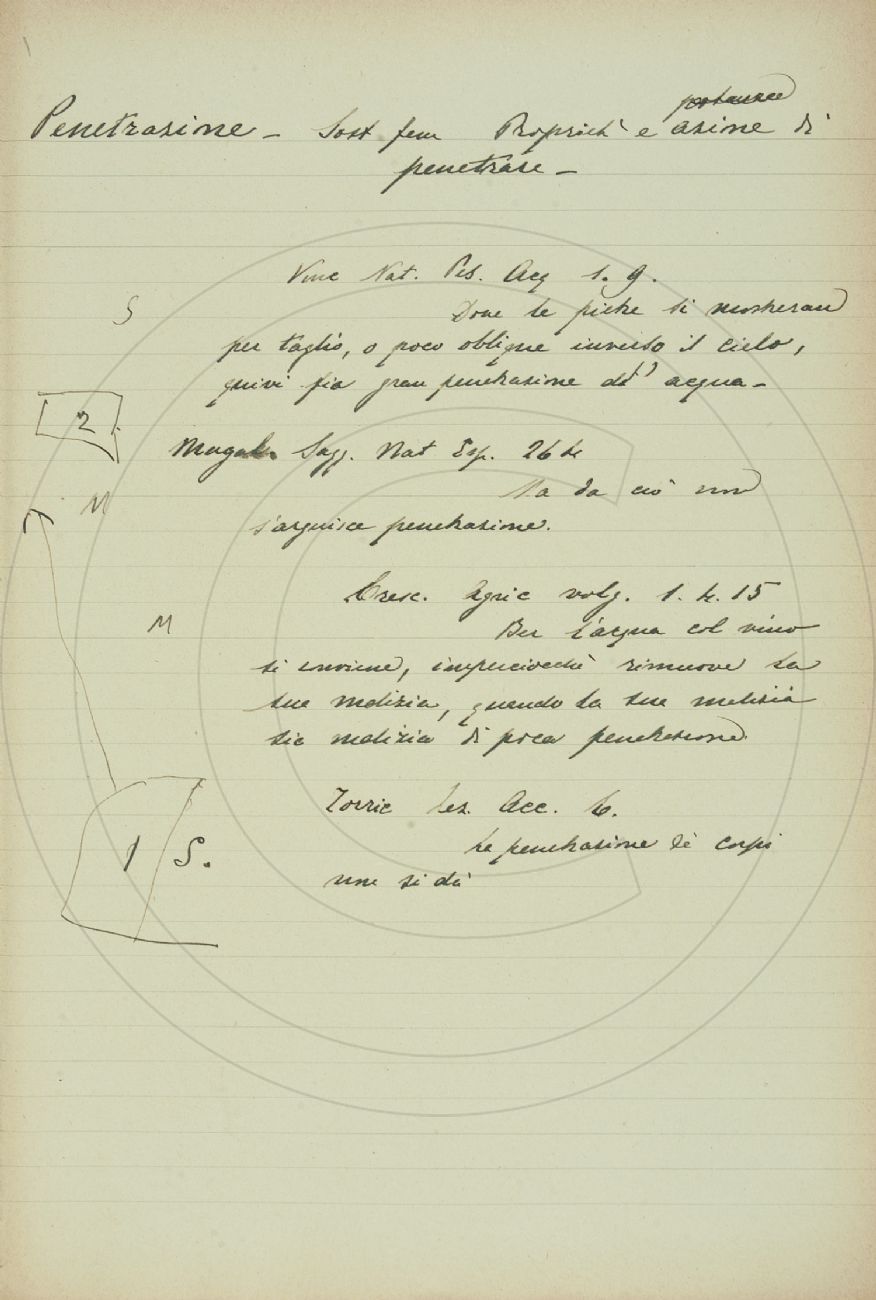 Penetrazione - Sost fem Proprietà e azione di
penetrare -
Vinc Nat. Pes. Acq 1. 9.
S
Dove le pietre si mosteran
per taglio, o poco oblique inverso il cielo,
quivi fia gran penetrazione d' acqua -
2
Magal. Sagg. Nat Esp. 264
Ma da ciò non
M
s'arguisce penetrazione.
Cresc. Agric volg. 1. 4. 15
M
Ber l'acqua col vino
si conviene, imperciocchè rimuove la
sua malizia, quando la sua malizia
sia malizia di poca penetrazione
Torric Lez. Acc. 4.
1 S.
La penetrazione de' corpi
non si dà